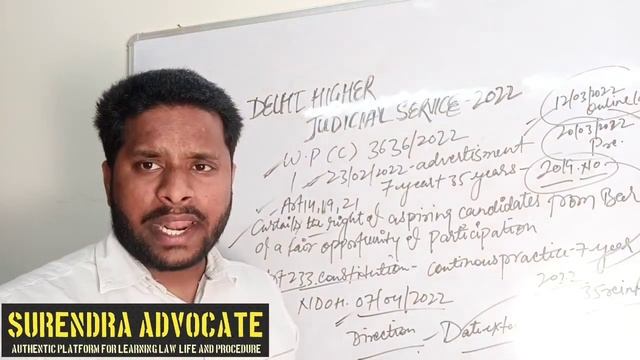 DELHI HIGHER
JUDICIAL SERVICE-2022
12/03/2022
20/03/2022
Pre.
W.P (C) 3636/2022
1 23/02/2022-advertisment
7 year + 35 years - 2019. NO
Art 14, 19, 21
Curtails the right of aspiring candidates from Bar
of a fair opportunity of Participation
233. constitution - continous practice - 7 year
NDOH. 07/04/2022
2022
35
Direction - Date
SURENDRA ADVOCATE
AUTHENTIC PLATFORM FOR LEARNING LAW, LIFE AND PROCEDURE